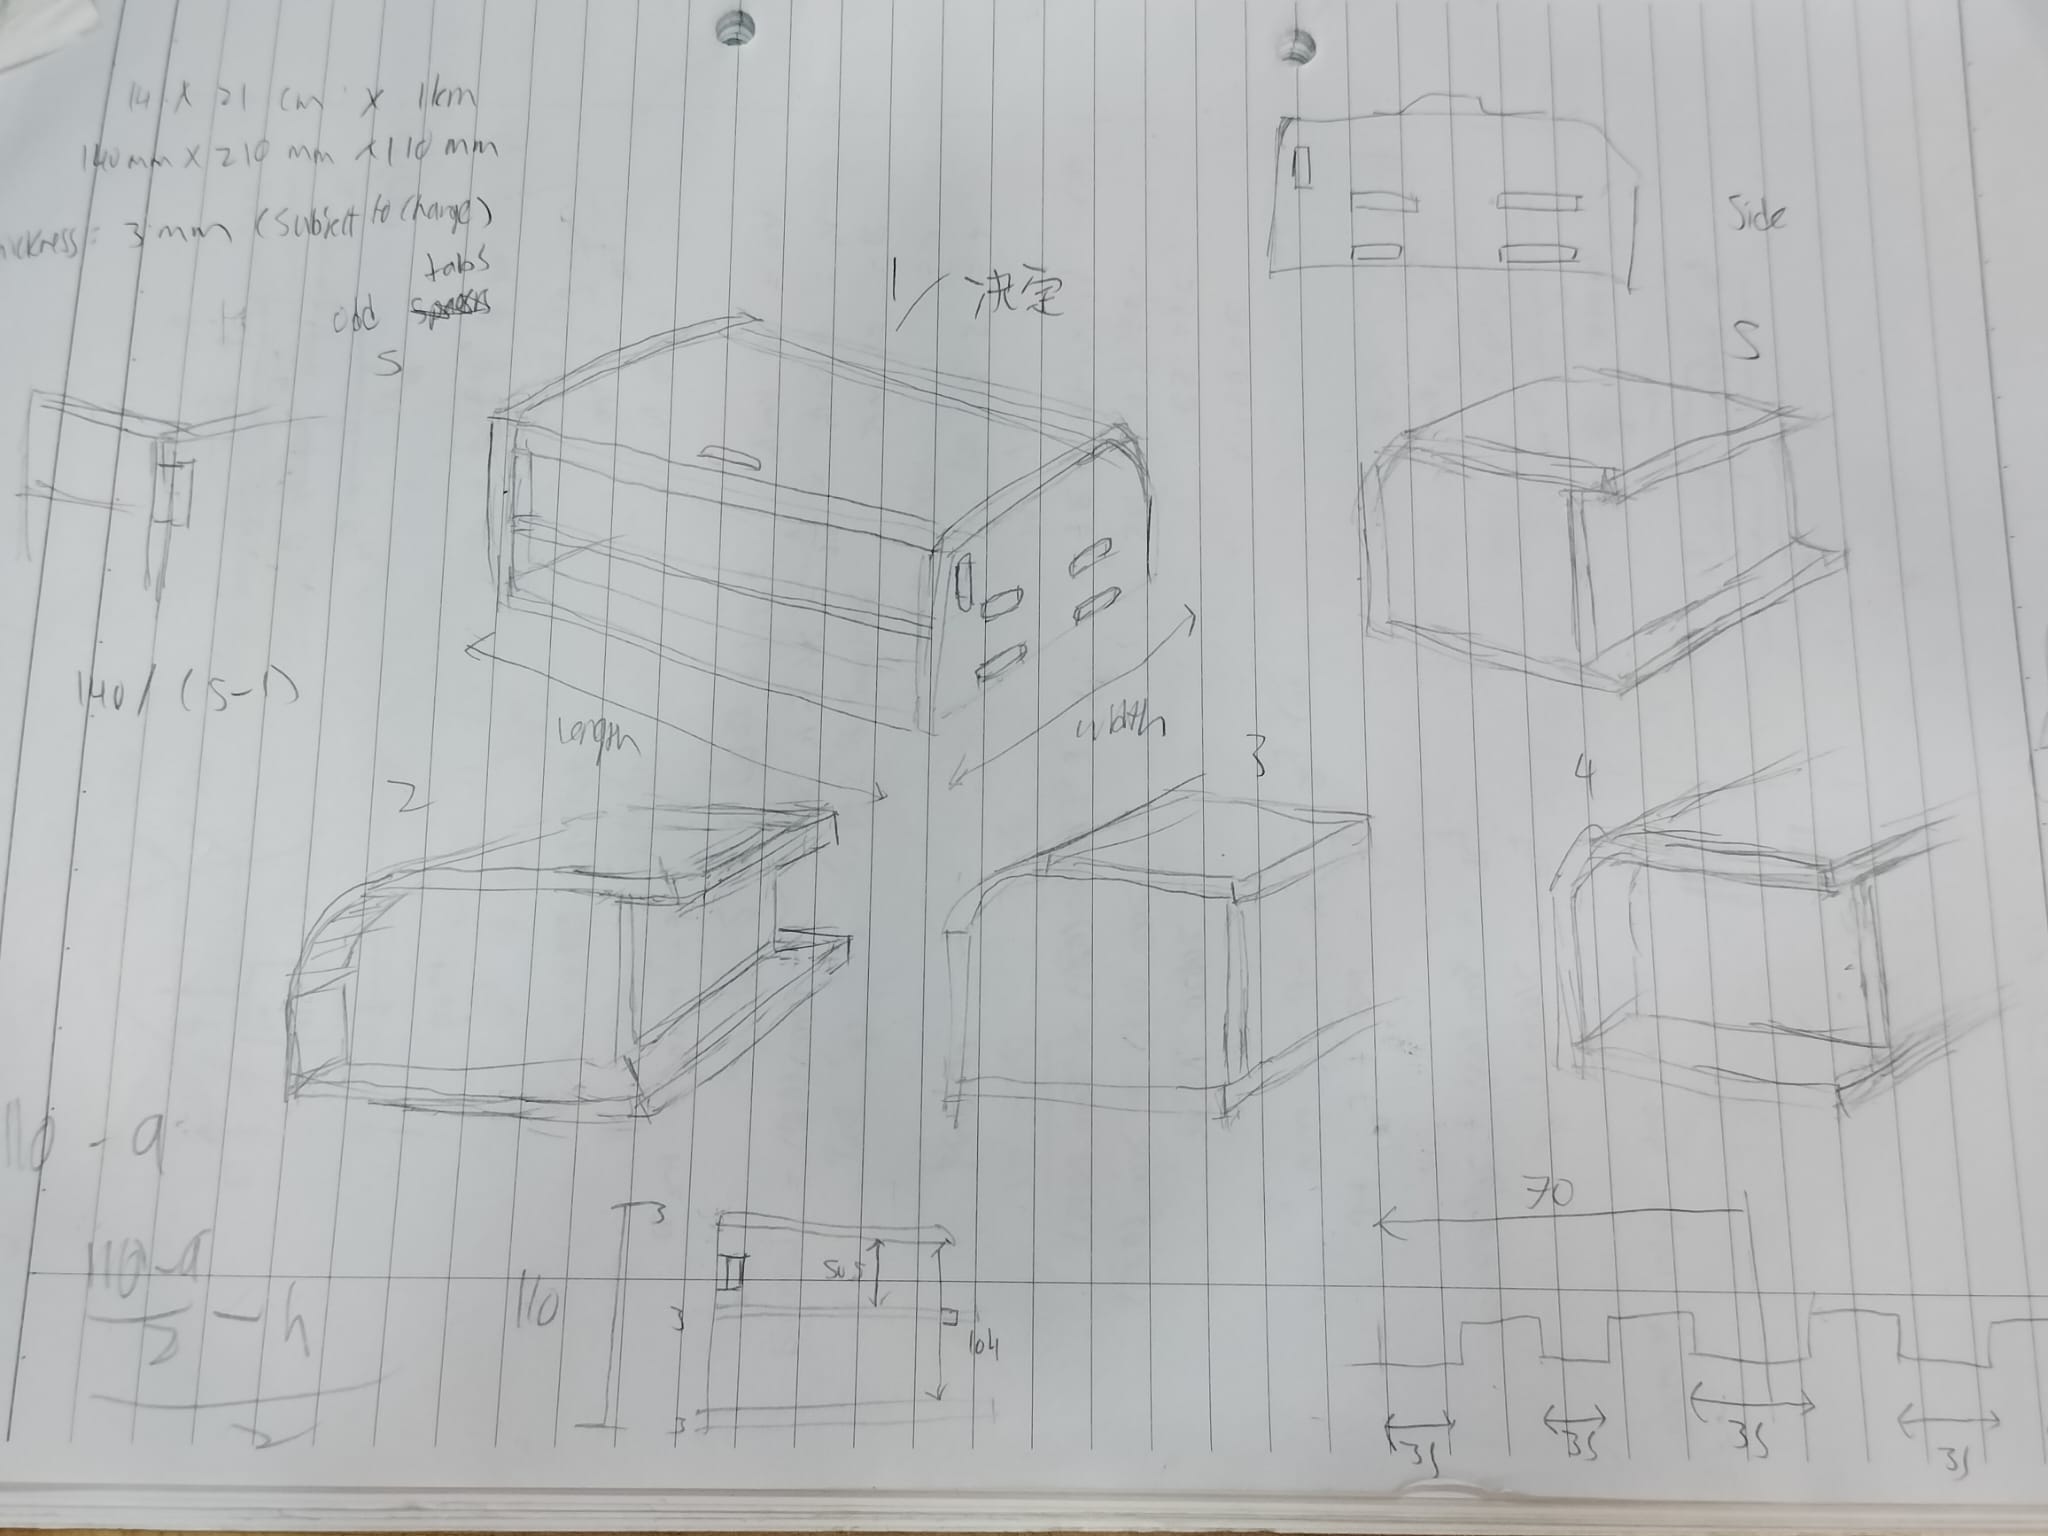 14 x 21 cm x 11cm
140mm x 210 mm x 110 mm
thickness: 3 mm (subject to change)
tabs
odd
5
1/ 決定
Side
5
140 / (5-1)
length
width
2
3
4
110 - 9
110-9
2
- h
2
3
110
3
3
50.5
104
70
35
35
35
35